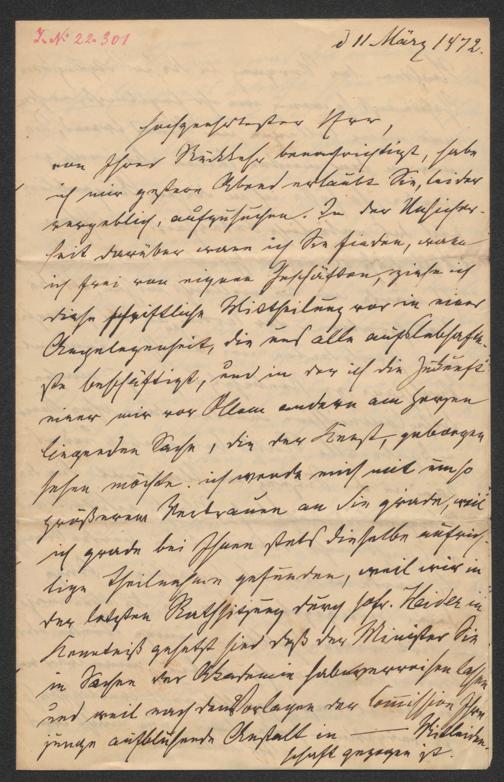 J. N. 22.301
d 11 März 1872.
Hochgeehrtester Herr,
von Ihrer Rückkehr benachrichtigt, habe
ich mir gestern Abend erlaubt Sie, leider
vergeblich, aufzusuchen. In der Unsicher-
heit darüber wann ich Sie finden, wann
ich frei von eigenen Geschäften, ziehe ich
diese schriftliche Mittheilung vor in einer
Angelegenheit, die uns alle aufs lebhafte-
ste beschäftigt, und in der ich die Zukunft
einer mir vor Allem andern am Herzen
liegenden Sache, die der Kunst, geborgen
sehen möchte. ich wende mich mit um so
größerem Vertrauen an Sie grade, weil
ich grade bei Ihnen stets dieselbe aufrich-
tige Theilnahme gefunden, weil wir in
der letzten Rathsitzung durch Hofr. Heider in
Kenntniß gesetzt sind daß der Minister Sie
in Sachen der Akademie haben lassen
und weil nach den Vorlagen der Commission Ihre
junge aufblühende Anstalt in Mitleiden-
schaft gezogen ist.